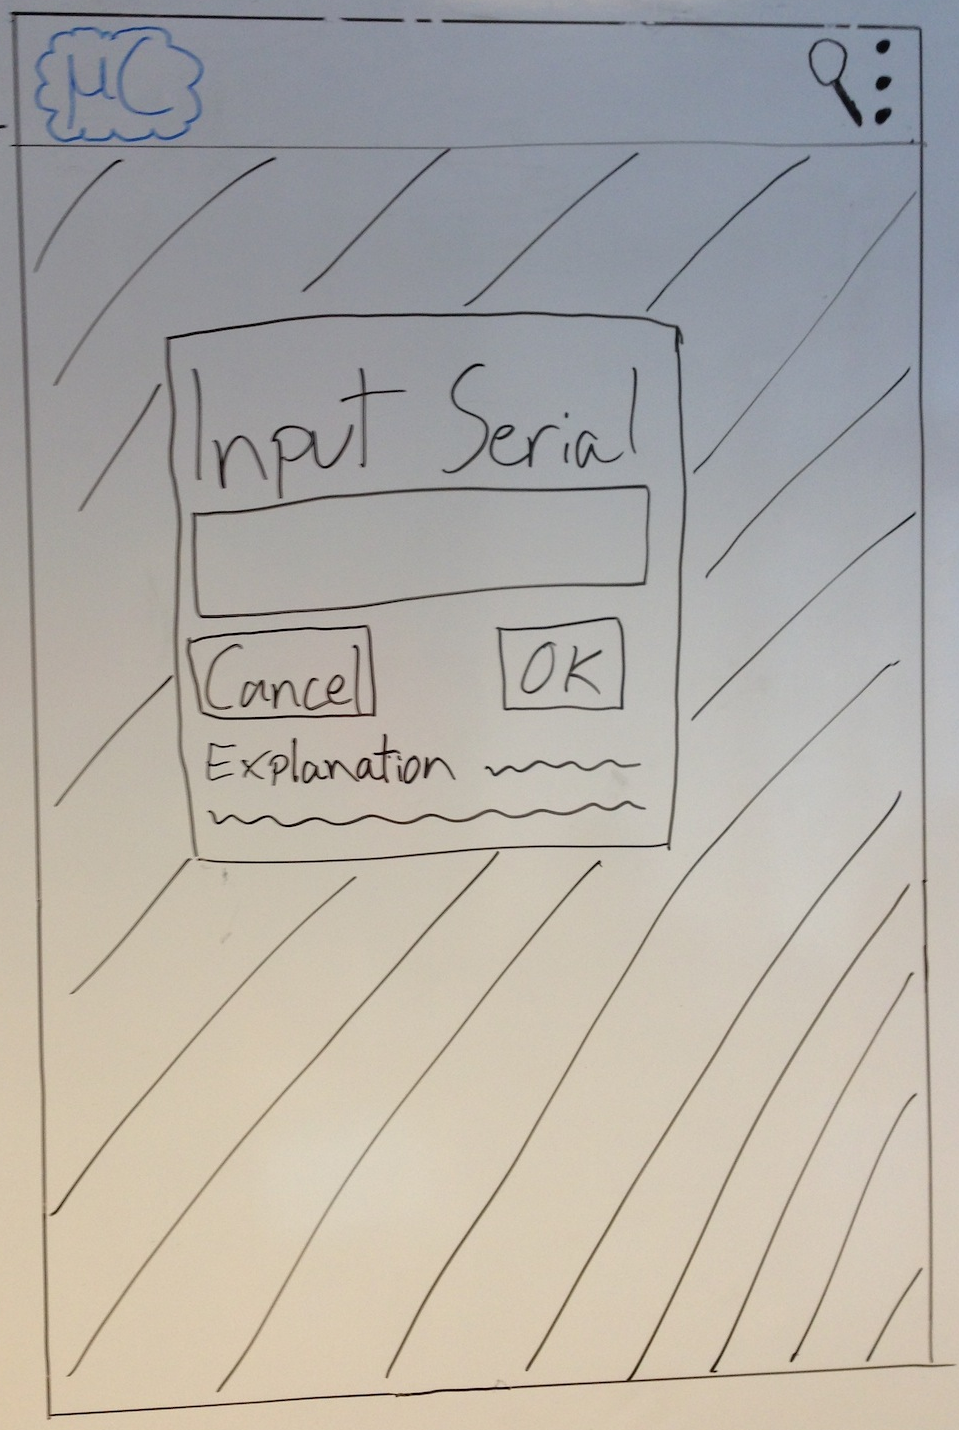 μC
Input Serial
Cancel OK
Explanation